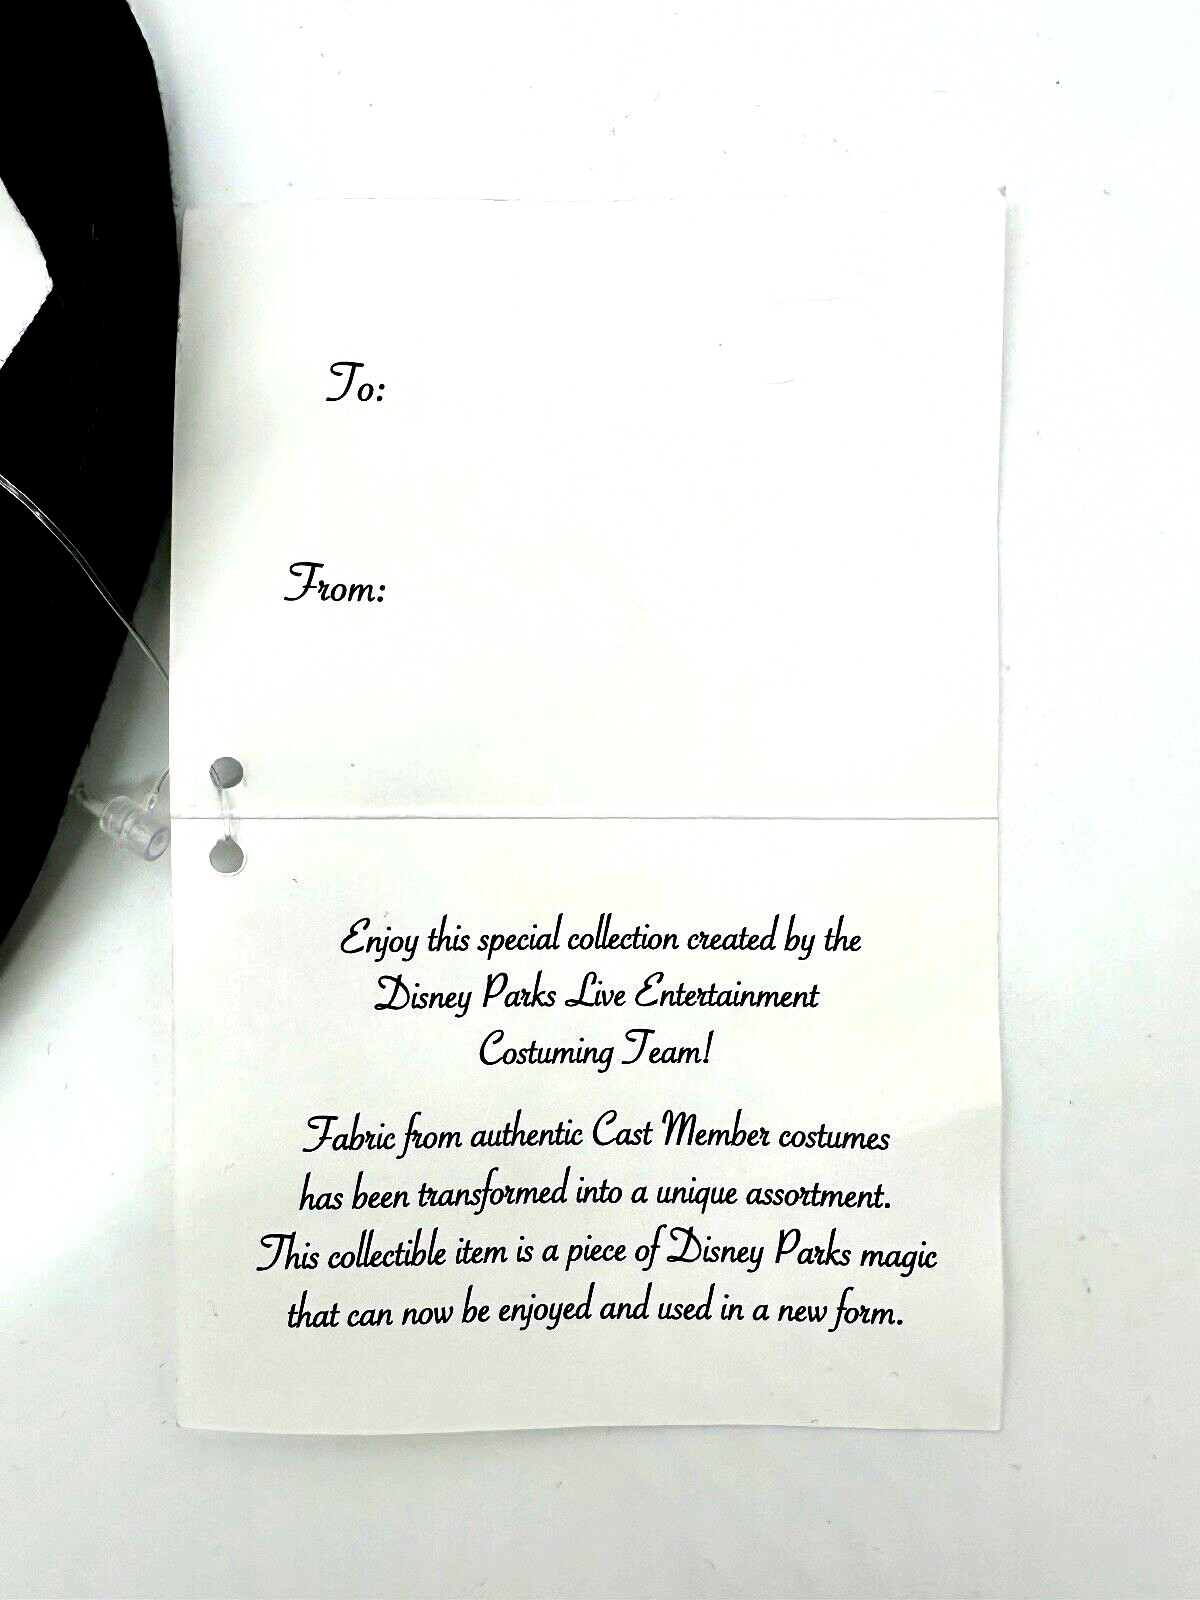 To:
From:
Enjoy this special collection created by the
Disney Parks Live Entertainment
Costuming Team!
Fabric from authentic Cast Member costumes
has been transformed into a unique assortment.
This collectible item is a piece of Disney Parks magic
that can now be enjoyed and used in a new form.